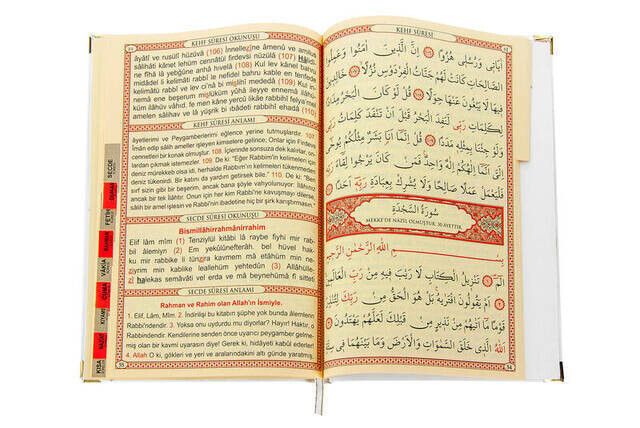 KEHF SÛRESİ OKUNUŞU
âyâtî ve rusulî hüzüvâ (106) İnnellezîne âmenû ve amilus
sâlihâti kânet lehüm cennâtül firdevsi nüzülâ (107) Hâlidî-
ne fîhâ lâ yebğûne anhâ hıvelâ (108) Kul lev kânel bahru
midâdel li kelimâti rabbî le nefidel bahru kable en tenfede
kelimâtü rabbî ve lev ci'nâ bi mislihî mededâ (109) Kul in-
nemâ ene beşerum mislüküm yûhâ ileyye ennemâ ilâhü-
küm ilâhüv vâhıd, fe men kâne yercû likâe rabbihî felya'mel
amelen sâlihav ve lâ yüşrik bi ıbâdeti rabbihî ehadâ (110)
KEHF SÛRESİ ANLAMI
âyetlerimi ve Peygamberlerimi eğlence yerine tutmuşlardır. 107.
İman edip sâlih ameller işleyen kimselere gelince; Onlar için Firdevs
cennetleri bir konak olmuştur. 108. İçlerinde sonsuza dek kalırlar, on-
lardan çıkmak istemezler. 109. De ki: "Eğer Rabbim'in kelimeleri için
deniz mürekkep olsa idi, herhalde Rabbim'in kelimeleri tükenmeden
deniz tükenirdi. Bir katını da yardım getirsek bile." 110. De ki: "Ben
sırf sizin gibi bir beşerim, ancak bana şöyle vahyolunuyor: İlâhınız
ancak bir tek ilâhtır. Onun için her kim Rabbi'ne kavuşmayı dilerse
sâlih amel işlesin ve Rabbi'nin ibadetine hiç bir şirk karıştırmasın."
SECDE SÛRESİ OKUNUŞU
Bismillâhirrahmânirrahîm
Elif lâm mîm (1) Tenzîlül kitâbi lâ raybe fîyhi mir rab-
bil âlemîyn (2) Em yekûlûnefterâh, bel hüvel hak-
ku mir rabbike li tünzira kavmem mâ etâhüm min ne-
zîyrim min kablike leallehüm yehtedûn (3) Allâhülle-
zî halekas semâvâti vel erda ve mâ beynehümâ fî sitteti
SECDE SÛRESİ ANLAMI
Rahman ve Rahim olan Allah'ın İsmiyle.
1. Elif, Lâm, Mîm. 2. İndirilişi bu kitabın şüphe yok bunda âlemlerin
Rabbi'ndendir. 3. Yoksa onu uydurdu mu diyorlar? Hayır! Haktır, o
Rabbindendir. Kendilerine senden önce uyarıcı peygamber gelme-
miş olan bir kavmi uyarasın diye! Gerek ki, hidâyeti kabûl ederler!
4. Allah O ki, gökleri ve yeri ve aralarındakini altı günde yaratmış,
55
SECDE
DUHAN
FETİH
RAHMAN
VÂKIA
CUMA
KIYAME
KISA
KEHF SÛRESİ
اٰيَاتٖى وَرُسُلٖى هُزُوًا ﴿١٠٦﴾ اِنَّ الَّذٖينَ اٰمَنُوا وَعَمِلُوا
الصَّالِحَاتِ كَانَتْ لَهُمْ جَنَّاتُ الْفِرْدَوْسِ نُزُلًا ﴿١٠٧﴾ خَالِدٖينَ
فٖيهَا لَا يَبْغُونَ عَنْهَا حِوَلًا ﴿١٠٨﴾ قُلْ لَوْ كَانَ الْبَحْرُ مِدَادًا
لِكَلِمَاتِ رَبّٖى لَنَفِدَ الْبَحْرُ قَبْلَ اَنْ تَنْفَدَ كَلِمَاتُ رَبّٖى
وَلَوْ جِئْنَا بِمِثْلِهٖ مَدَدًا ﴿١٠٩﴾ قُلْ اِنَّمَا اَنَا بَشَرٌ مِثْلُكُمْ يُوحٰى
اِلَىَّ اَنَّمَا اِلٰهُكُمْ اِلٰهٌ وَاحِدٌ فَمَنْ كَانَ يَرْجُوا لِقَاءَ رَبِّهٖ
فَلْيَعْمَلْ عَمَلًا صَالِحًا وَلَا يُشْرِكْ بِعِبَادَةِ رَبِّهٖ اَحَدًا ﴿١١٠﴾
سُورَةُ السَّجْدَةِ
MEKKE'DE NAZİL OLMUŞTUR. 30 AYETTİR.
بِسْمِ اللّٰهِ الرَّحْمٰنِ الرَّحٖيمِ
الٓمٓ ﴿١﴾ تَنْزٖيلُ الْكِتَابِ لَا رَيْبَ فٖيهِ مِنْ رَبِّ الْعَالَمٖينَ ﴿٢﴾
اَمْ يَقُولُونَ افْتَرٰيهُ بَلْ هُوَ الْحَقُّ مِنْ رَبِّكَ لِتُنْذِرَ
قَوْمًا مَا اَتٰيهُمْ مِنْ نَذٖيرٍ مِنْ قَبْلِكَ لَعَلَّهُمْ يَهْتَدُونَ ﴿٣﴾
اَللّٰهُ الَّذٖى خَلَقَ السَّمٰوَاتِ وَالْاَرْضَ وَمَا بَيْنَهُمَا فٖى
54